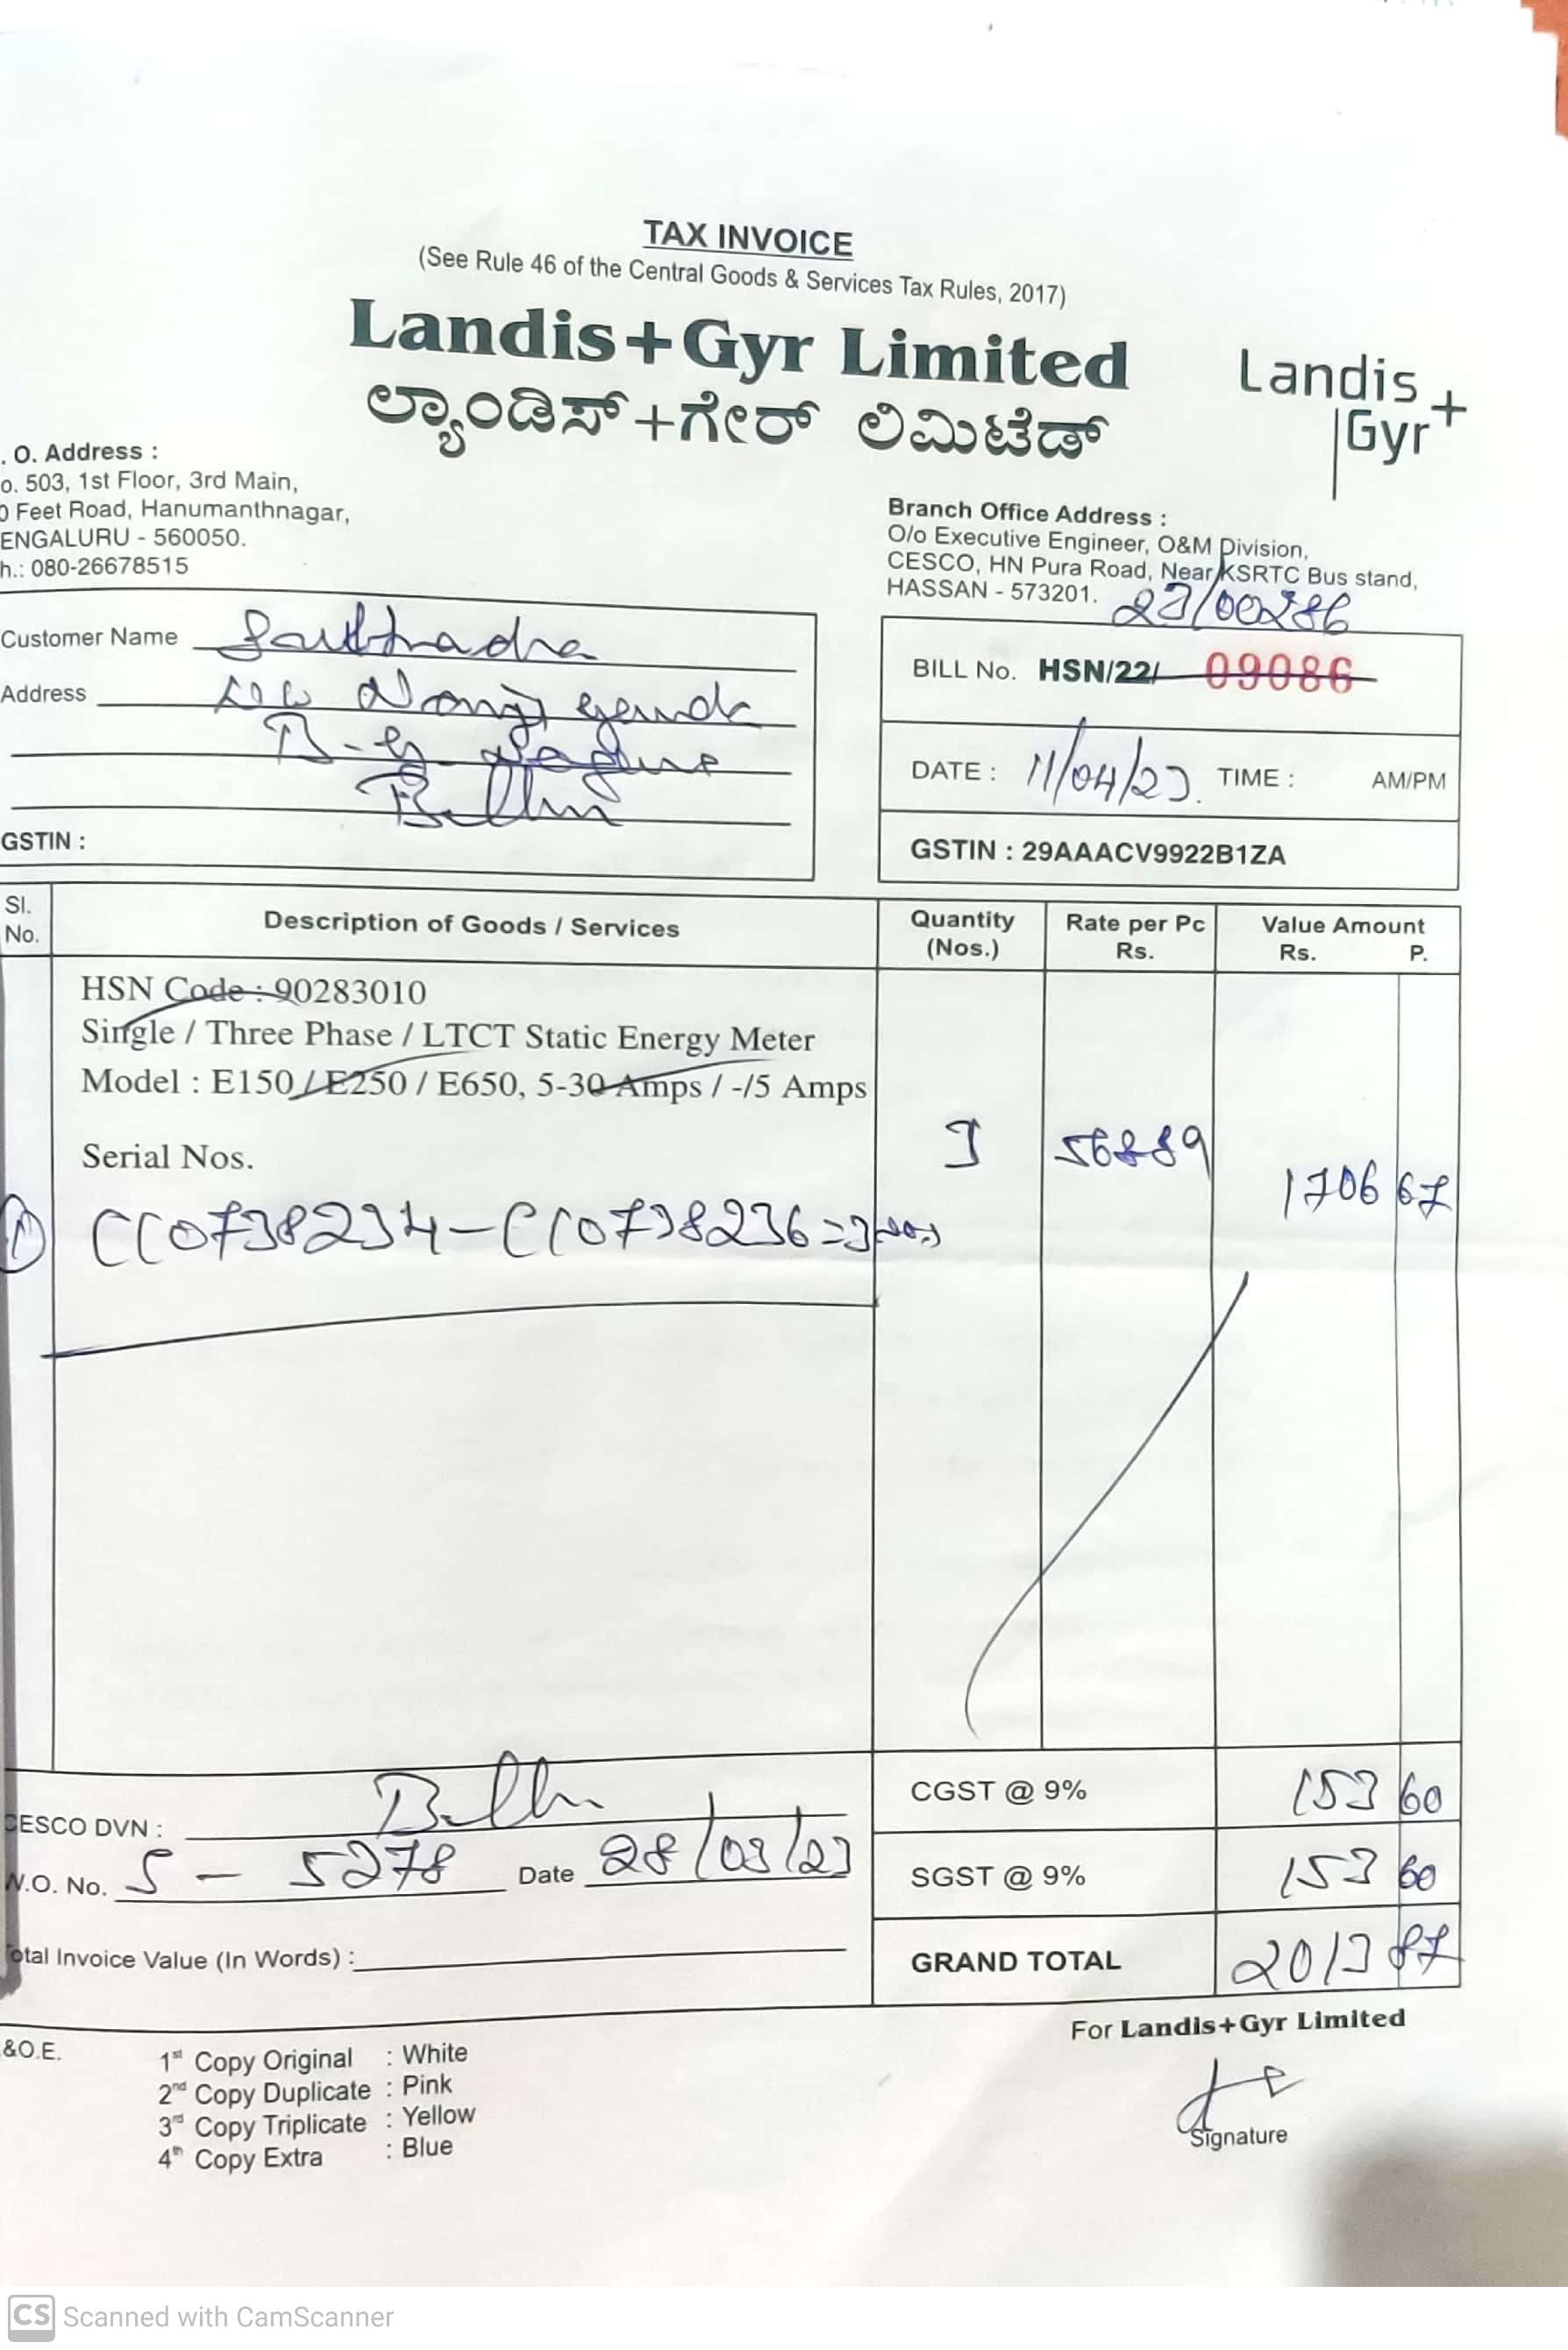 TAX INVOICE
(See Rule 46 of the Central Goods & Services Tax Rules, 2017)
Landis+Gyr Limited
ಲ್ಯಾಂಡಿಸ್+ಗೇರ್ ಲಿಮಿಟೆಡ್
Landis+
Gyr
. O. Address :
o. 503, 1st Floor, 3rd Main,
0 Feet Road, Hanumanthnagar,
ENGALURU - 560050.
h.: 080-26678515
Branch Office Address :
O/o Executive Engineer, O&M Division,
CESCO, HN Pura Road, Near KSRTC Bus stand,
HASSAN - 573201.
23/00286
Customer Name
Address
GSTIN :
BILL No. HSN/22/ 09086
DATE : 11/04/23. TIME : AM/PM
GSTIN : 29AAACV9922B1ZA
Sl. No. Description of Goods / Services Quantity (Nos.) Rate per Pc Rs. Value Amount Rs. P.
HSN Code : 90283010
Single / Three Phase / LTCT Static Energy Meter
Model : E150 / E250 / E650, 5-30 Amps / -/5 Amps
Serial Nos. 3 56889 1706 67
1) CC0738234 - CC0738236 = 3 Nos)
CESCO DVN :
W.O. No. S - 5278 Date 28/03/23
Total Invoice Value (In Words) :
CGST @ 9% 153 60
SGST @ 9% 153 60
GRAND TOTAL 2013 87
For Landis+Gyr Limited
Signature
&O.E.
1st Copy Original : White
2nd Copy Duplicate : Pink
3rd Copy Triplicate : Yellow
4th Copy Extra : Blue
CS Scanned with CamScanner